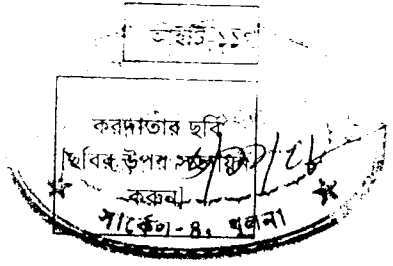 আইটি-১১গ
করদাতার ছবি
[ছবির উপর সত্যায়ন
করুন]
সার্কেল-৪, খুলনা